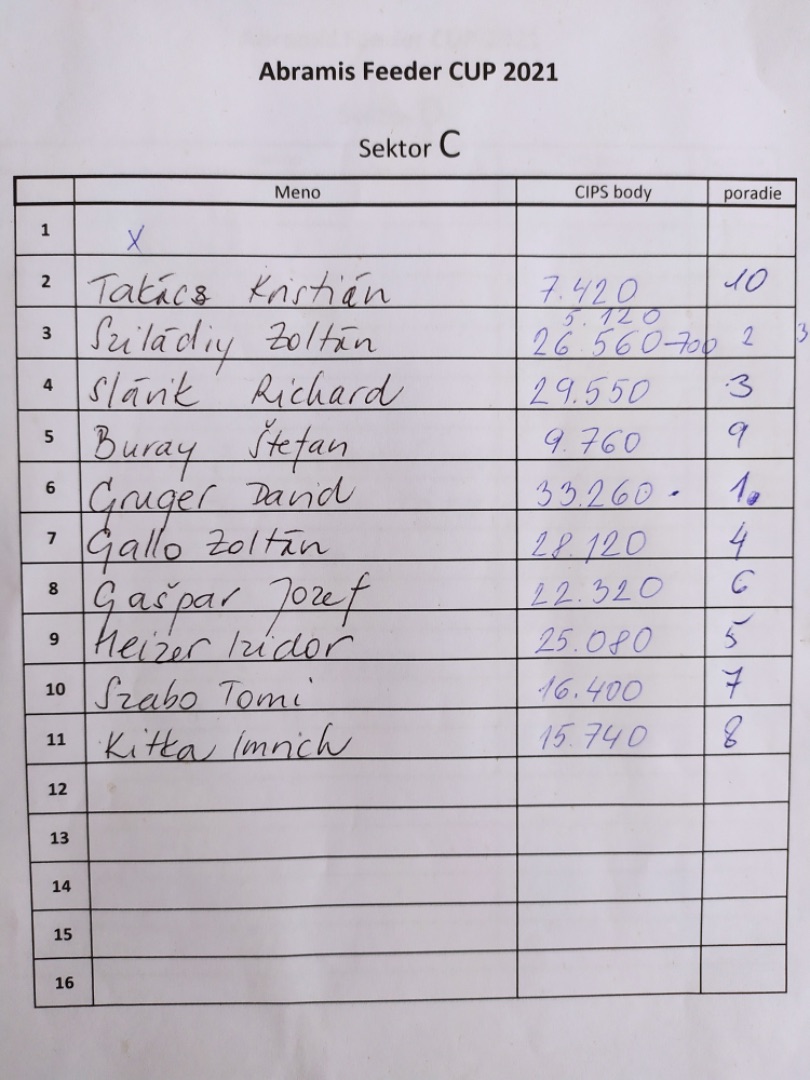 Abramis Feeder CUP 2021
Sektor C
Meno CIPS body poradie
1 X
2 Takács Kristián 7.420 10
5.120
3 Sziládiy Zoltán 26.560-700 2 3
4 Slávik Richard 29.550 3
5 Buray Štefan 9.760 9
6 Gruger David 33.260 . 1.
7 Gallo Zoltán 28.120 4
8 Gašpar Jozef 22.320 6
9 Heizer Izidor 25.080 5
10 Szabo Tomi 16.400 7
11 Kitka Imrich 15.740 8
12
13
14
15
16